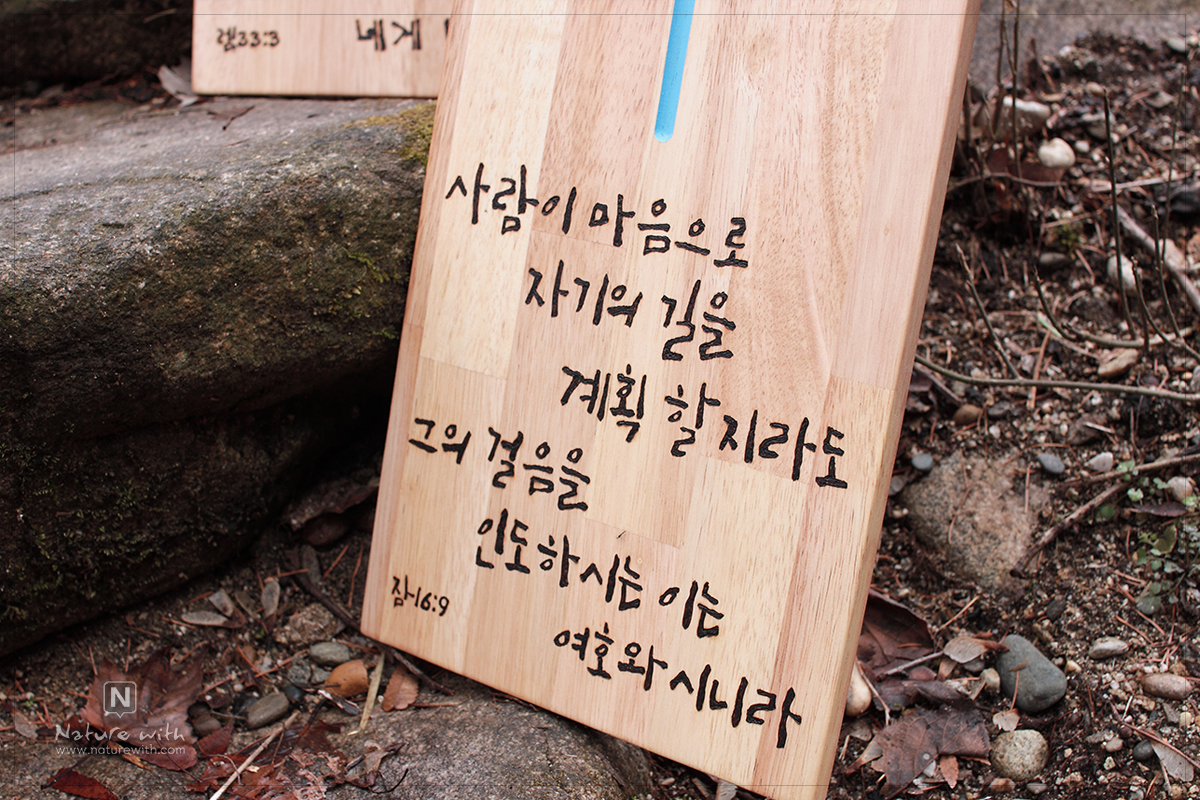 렘33:3
네게
사람이 마음으로
자기의 길을
계획 할지라도
그의 걸음을
인도하시는 이는
여호와시니라
잠-16:9
N
Nature with
www.naturewith.com